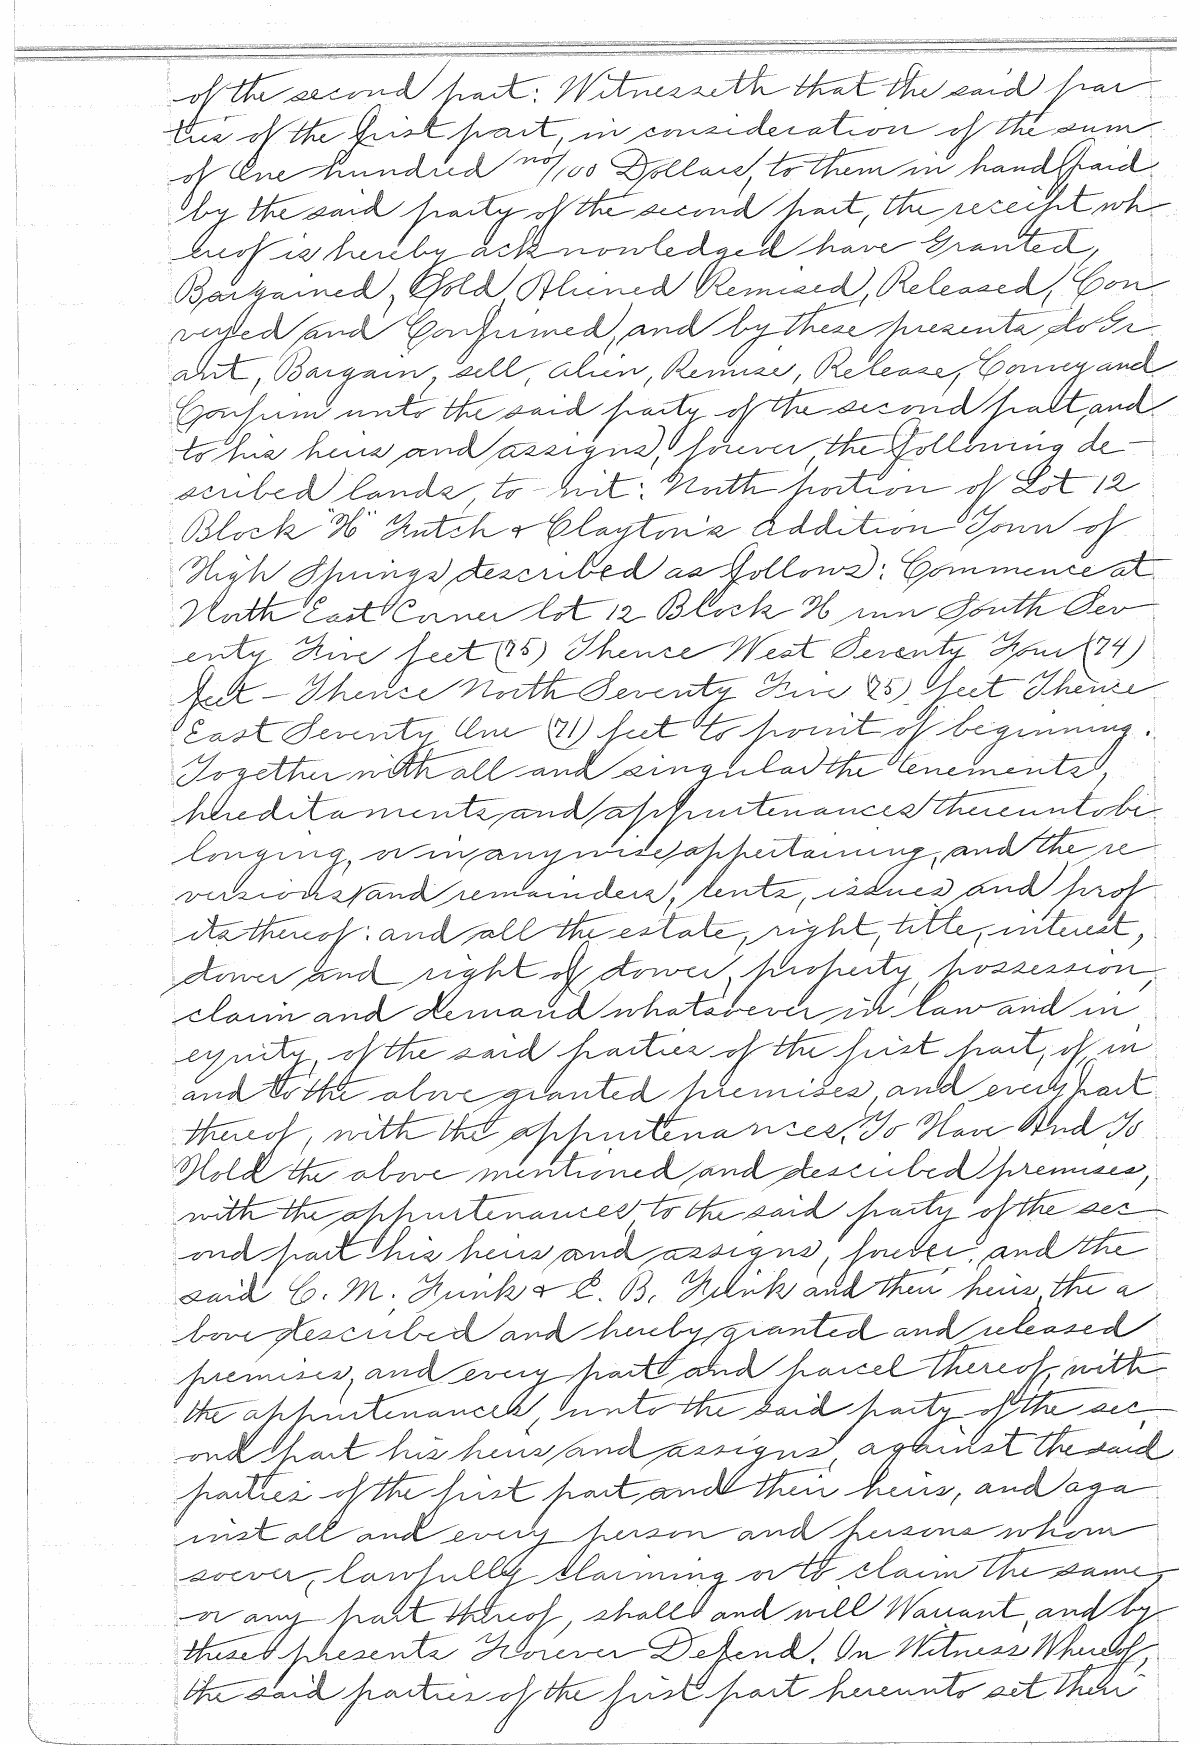 of the second part: Witnesseth that the said par
ties of the first part, in consideration of the sum
of One hundred no/100 Dollars, to them in hand paid
by the said party of the second part, the receipt wh
ereof is hereby acknowledged have Granted,
Bargained, Sold, Aliened Remised, Released, Con
veyed and Confirmed, and by these presents do Gr
ant, Bargain, sell, alien, Remise, Release, Convey and
Confirm unto the said party of the second part, and
to his heirs and assigns, forever, the following de-
scribed lands, to-wit: North portion of Lot 12
Block "H" Futch & Clayton's addition Town of
High Springs, described as follows: Commence at
North East Corner lot 12 Block H run South Sev
enty Five feet (75) Thence West Seventy Four (74)
feet - Thence North Seventy Five (75) feet Thence
East Seventy One (71) feet to point of beginning.
Together with all and singular the tenements,
hereditaments, and appurtenances thereunto be
longing, or in anywise appertaining, and the re
versions and remainders, rents, issues and prof
its thereof: and all the estate, right, title, interest,
dower and right of dower, property, possession,
claim and demand whatsoever, in law and in
equity, of the said parties of the first part, of in
and to the above granted premises, and every part
thereof, with the appurtenances, To Have And To
Hold the above mentioned and described premises,
with the appurtenances to the said party of the sec
ond part his heirs and assigns, forever. and the
said C. M. Funk & E. B. Funk and their heirs, the a
bove described and hereby granted and released
premises, and every part and parcel thereof, with
the appurtenances, unto the said party of the sec
ond part his heirs and assigns, against the said
parties of the first part and their heirs, and aga
inst all and every person and persons whom
soever, lawfully claiming or to claim the same,
or any part thereof, shall and will Warrant and by
these presents Forever Defend. In Witness Whereof,
the said parties of the first part hereunto set their